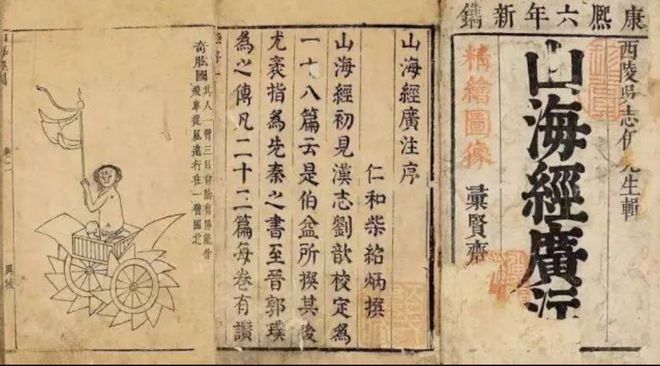 康熙六年新鐫
西陵吳志伊先生輯
山海經廣注
精繪圖像
彙賢齋
山海經廣注序
仁和柴紹炳撰
山海經初見漢志劉歆校定為
一十八篇云是伯益所撰其後
尤袤指為先秦之書至晉郭璞
為之傳凡二十三篇每卷有讚
奇肱國
其人一臂三目有陰有陽能作
飛車從風遠行在一臂國北